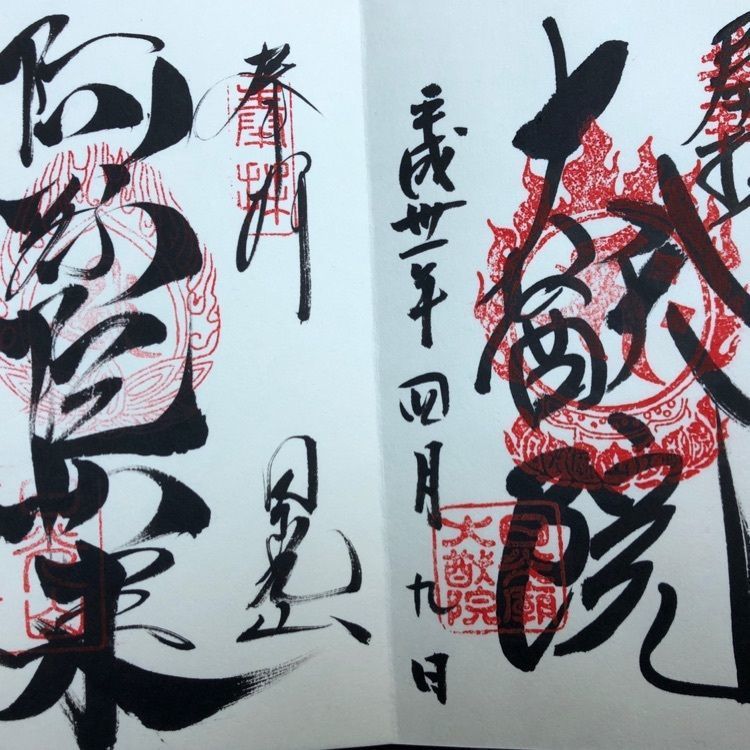 奉拝
大猷院
家光廟
大猷院
平成卅一年四月九日
奉拝
日光山
阿弥陀如来